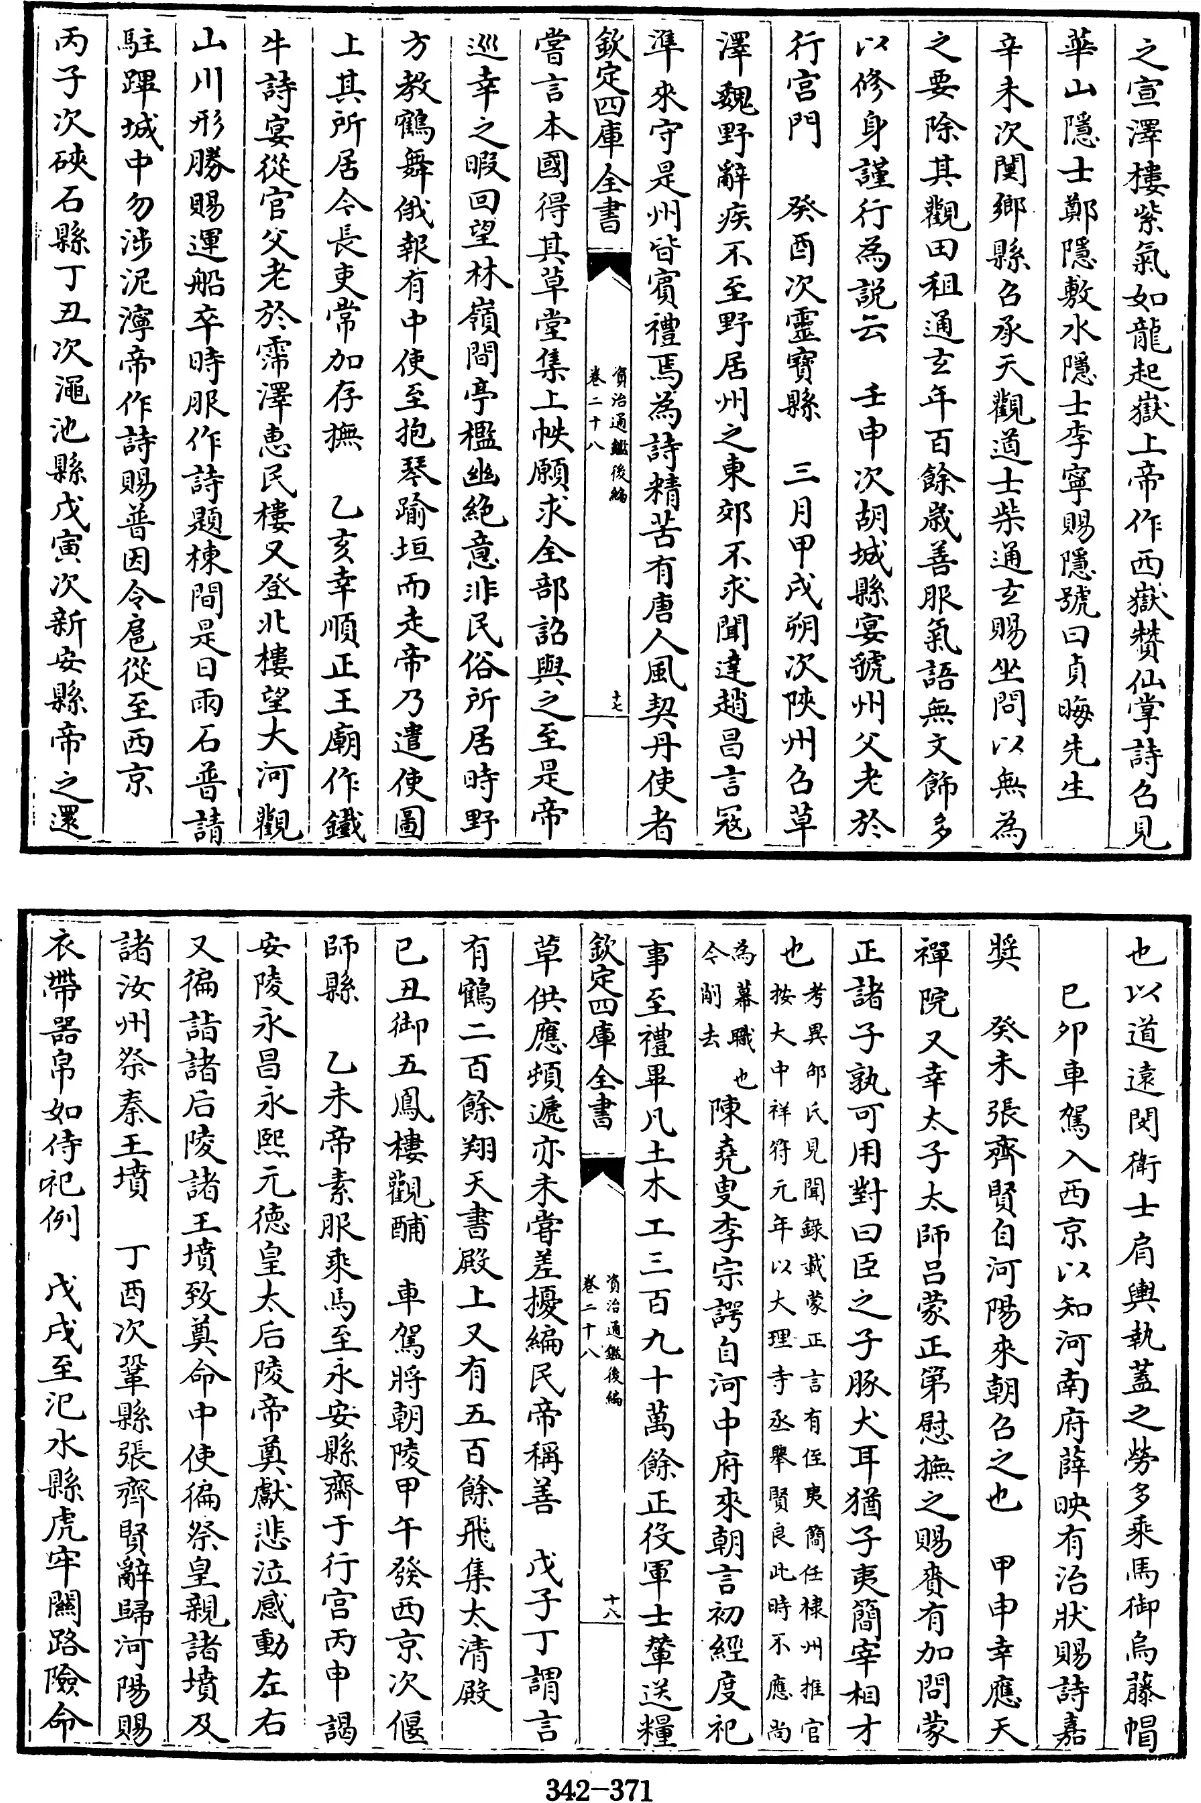 之宣澤樓紫氣如龍起嶽上帝作西嶽贊仙掌詩召見
華山隱士鄭隱敷水隱士李寧賜隱號曰貞晦先生
辛未次閿鄉縣召承天觀道士柴通玄賜坐問以無為
之要除其觀田租通玄年百餘歲善服氣語無文飾多
以修身謹行為說云　壬申次胡城縣宴虢州父老於
行宮門　癸酉次靈寶縣　三月甲戌朔次陝州召草
澤魏野辭疾不至野居州之東郊不求聞達趙昌言寇
準來守是州皆賓禮焉為詩精苦有唐人風契丹使者
欽定四庫全書　資治通鑑後編　卷二十八　十七
嘗言本國得其草堂集上帙願求全部詔與之至是帝
巡幸之暇回望林嶺間亭檻幽絶意非民俗所居時野
方教鶴舞俄報有中使至抱琴踰垣而走帝乃遣使圖
上其所居令長吏常加存撫　乙亥幸順正王廟作鐵
牛詩宴從官父老於霈澤惠民樓又登北樓望大河觀
山川形勝賜運船卒時服作詩題棟間是日雨石普請
駐蹕城中勿涉泥濘帝作詩賜普因令扈從至西京
丙子次硤石縣丁丑次澠池縣戊寅次新安縣帝之還
也以道遠閔衛士肩輿執蓋之勞多乘馬御烏藤帽
己卯車駕入西京以知河南府薛映有治狀賜詩嘉
獎　癸未張齊賢自河陽來朝召之也　甲申幸應天
禪院又幸太子太師呂蒙正第慰撫之賜賚有加問蒙
正諸子孰可用對曰臣之子豚犬耳猶子夷簡宰相才
也考異邵氏見聞錄載蒙正言有侄夷簡任棣州推官
按大中祥符元年以大理寺丞舉賢良此時不應尚
為幕職也
令削去
陳堯叟李宗諤自河中府來朝言初經度祀
事至禮畢凡土木工三百九十萬餘正役軍士輦送糧
欽定四庫全書　資治通鑑後編　卷二十八　十八
草供應頓遞亦未嘗差擾編民帝稱善　戊子丁謂言
有鶴二百餘翔天書殿上又有五百餘飛集太清殿
己丑御五鳳樓觀酺　車駕將朝陵甲午發西京次偃
師縣　乙未帝素服乘馬至永安縣齋于行宮丙申謁
安陵永昌永熙元德皇太后陵帝奠獻悲泣感動左右
又徧詣諸后陵諸王墳致奠命中使徧祭皇親諸墳及
諸汝州祭秦王墳　丁酉次鞏縣張齊賢辭歸河陽賜
衣帶器帛如侍祀例　戊戌至汜水縣虎牢關路險命
342-371